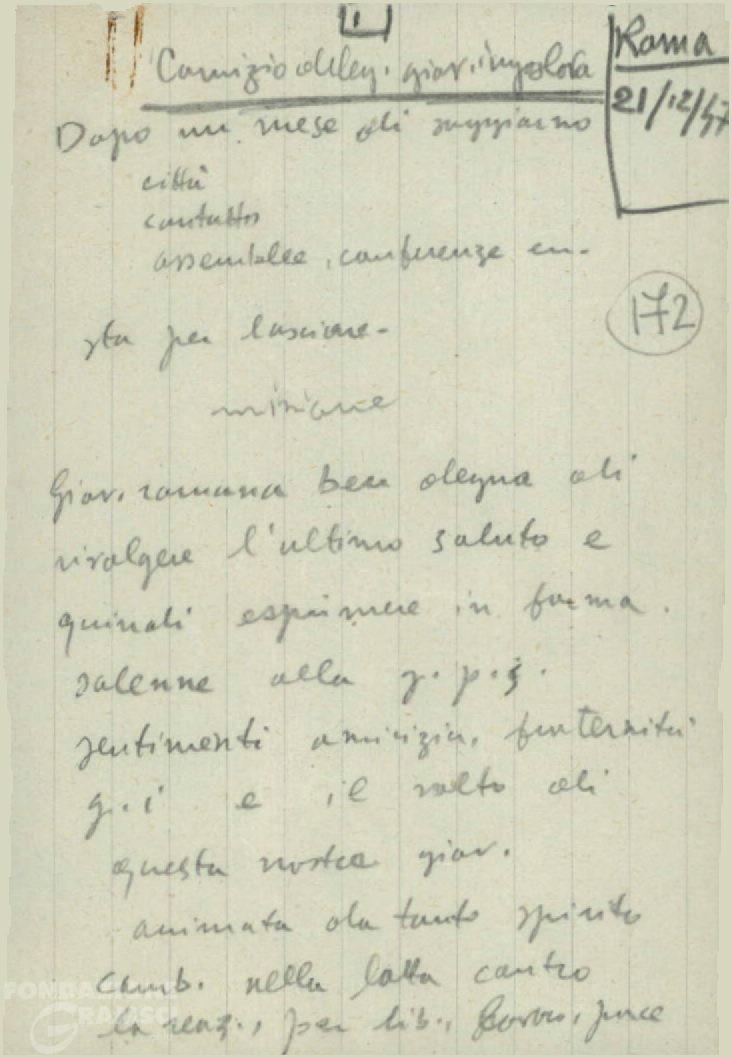 1
Comizio deleg. giov. ingolora
Roma
21/12/47
Dopo un mese di soggiorno
città
contatto
assemblee, conferenze
172
sta per lasciare -
missione
Giov. romana ben degna di
rivolgere l'ultimo saluto e
quindi esprimere in forma
solenne alla g. p. s.
sentimenti amicizia, fraternità
g. i e il volto di
questa nostra giov.
animata da tanto spirito
comb. nella lotta contro
la reaz., per lib., lavoro, pace
FONDAZIONE
GRAMSCI